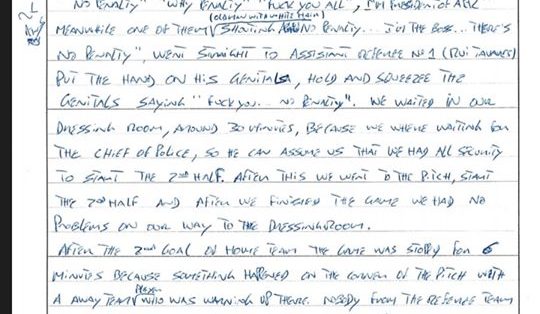 NO PENALTY" "WHY PENALTY" "FUCK YOU ALL", I'M PRESIDENT OF
(OLDMAN WITH WHITE HAIR)
MEANWHILE ONE OF THEM SHOUTING NO PENALTY... I'M THE BOSS... THERE'S
NO PENALTY", WENT STRAIGHT TO ASSISTANT REFEREE Nº1 (RUI TAVARES)
PUT THE HAND ON HIS GENITALS, HOLD AND SQUEEZE THE
GENITALS SAYING "FUCK YOU... NO PENALTY". WE WAITED IN OUR
DRESSING ROOM, AROUND 30 MINUTES, BECAUSE WE WHERE WAITING FOR
THE CHIEF OF POLICE, SO HE CAN ASSUME US THAT WE HAD ALL SECURITY
TO START THE 2nd HALF. AFTER THIS WE WENT TO THE PITCH, START
THE 2nd HALF AND AFTER WE FINISHED THE GAME WE HAD NO
PROBLEMS ON OUR WAY TO THE DRESSINGROOM.
AFTER THE 2nd GOAL OF HOME TEAM THE GAME WAS STOPP FOR 6
MINUTES BECAUSE SOMETHING HAPPENED ON THE CORNER OF THE PITCH WITH
A AWAY TEAM PLAYER WHO WAS WARMING UP THERE. NOBODY FROM THE REFEREE TEAM